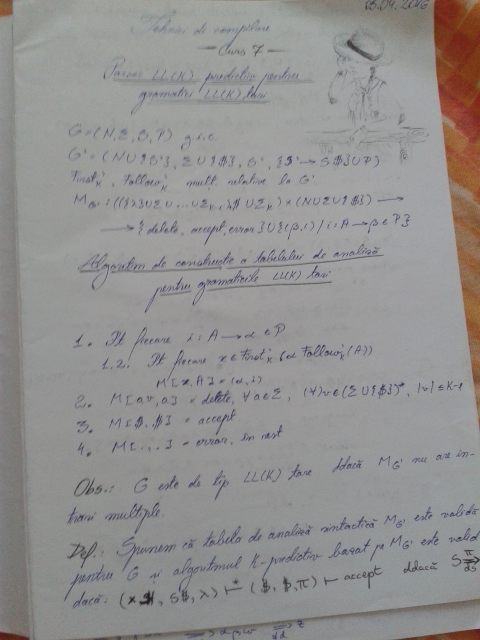 05.04.2016
Tehnici de compilare
— Curs 7 —
Parser LL(K) predictiv pentru
gramatici LL(K) tari
G = (N, Σ, S, P) g.i.c.
G' = (N∪{S'}, Σ∪{$}, S', {S' → S$}∪P)
First'ₖ, Follow'ₖ mult. relative la G'
M_G' : (({λ}∪Σ∪...∪Σₖ, λ$∪Σₖ) × (N∪Σ∪{$}) →
→ { delete, accept, error }∪{(β, i) / i: A → β ∈ P}
Algoritm de construcție a tabelului de analiză
pentru gramaticile LL(K) tari
1. Pt fiecare i: A → α ∈ P
1.2. Pt fiecare x ∈ First'ₖ (α Follow'ₖ(A))
M[x, A] = (α, i)
2. M[av, a] = delete, ∀a∈Σ, (∀)v∈(Σ∪{$})*, |v| ≤ K-1
3. M[$, $] = accept
4. M[., .] = error, în rest
Obs.: G este de tip LL(K) tare ddacă M_G' nu are in-
trări multiple.
Def.: Spunem că tabela de analiză sintactică M_G' este validă
pentru G și algoritmul K-predictiv bazat pe M_G' este valid
dacă: (x$, S$, λ) ⊢* ($, $, π) ⊢ accept ddacă S π⇒ds